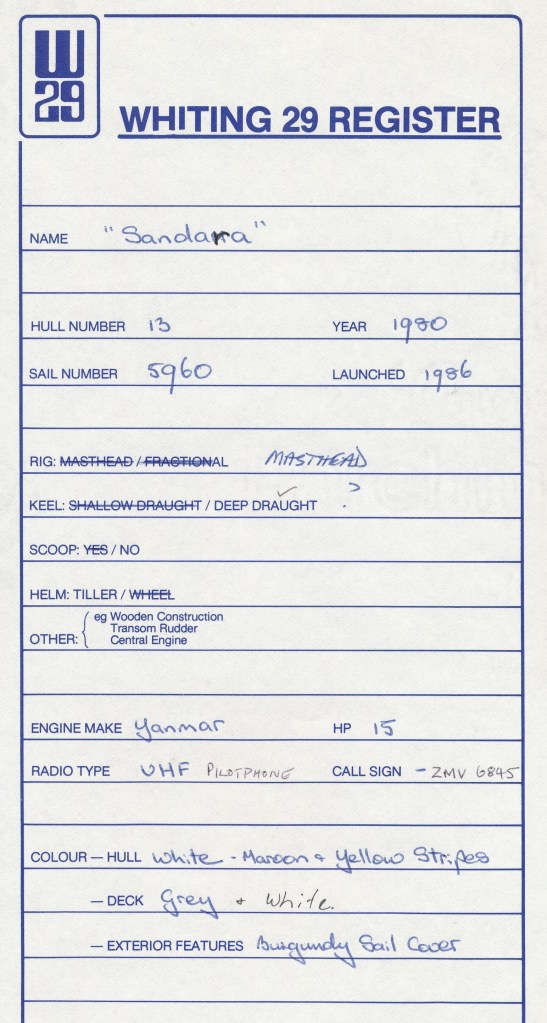 W
29
WHITING 29 REGISTER
NAME "Sandarra"
HULL NUMBER 13 YEAR 1980
SAIL NUMBER 5960 LAUNCHED 1986
RIG: MASTHEAD / FRACTIONAL MASTHEAD
KEEL: SHALLOW DRAUGHT / DEEP DRAUGHT ✓ ?
SCOOP: YES / NO
HELM: TILLER / WHEEL
OTHER: { eg Wooden Construction
Transom Rudder
Central Engine
ENGINE MAKE Yanmar HP 15
RADIO TYPE VHF PILOTPHONE CALL SIGN - ZMV 6845
COLOUR — HULL White - Maroon & Yellow Stripes
— DECK Grey & White.
— EXTERIOR FEATURES Burgundy Sail Cover